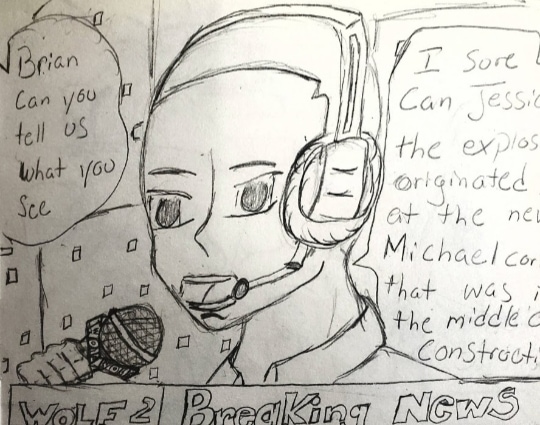 Brian
Can you
tell us
what you
see
I sure
Can Jessic
the explos
originated
at the new
Michael cor
that was i
the middle o
Constructi
WOLF 2 Breaking News